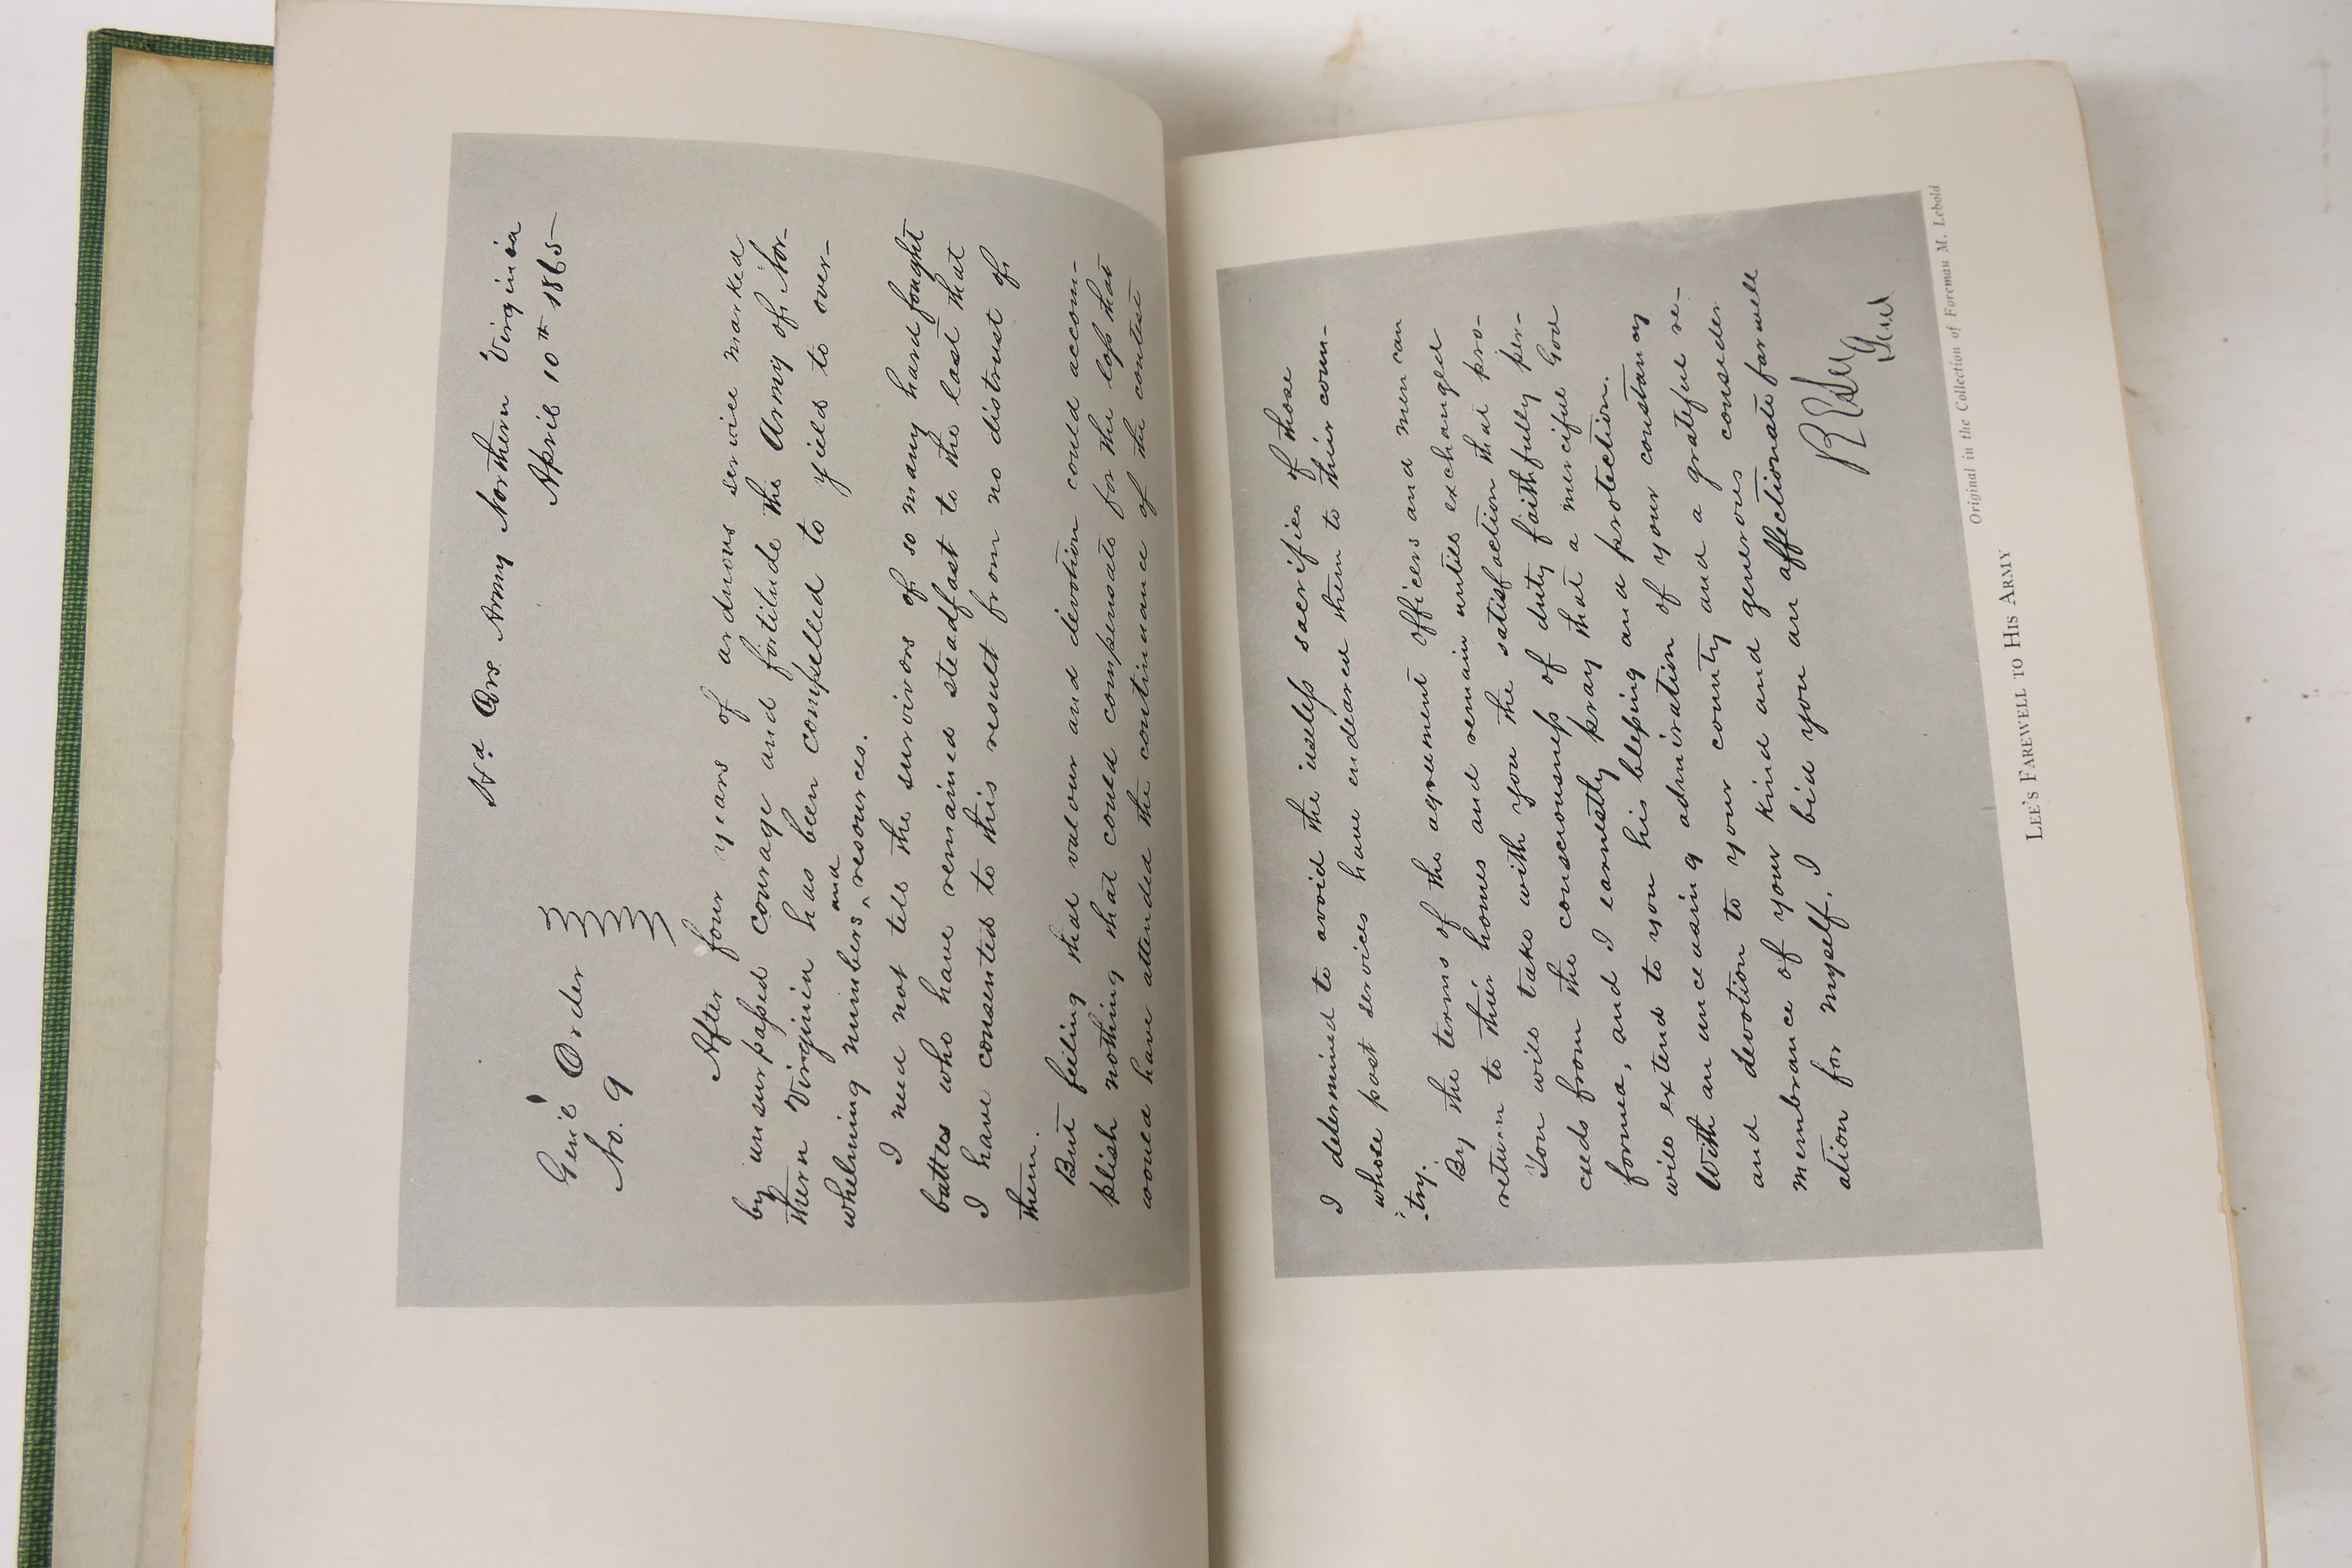 Hd. Qrs. Army Northern Virginia
April 10th 1865
Genl Order
No. 9
After four years of arduous service marked
by unsurpassed courage and fortitude the Army of Nor-
thern Virginia has been compelled to yield to over-
whelming numbers and resources.
I need not tell the survivors of so many hard fought
battles who have remained steadfast to the last that
I have consented to this result from no distrust of
them.
But feeling that valour and devotion could accom-
plish nothing that could compensate for the loss that
would have attended the continuance of the contest
I determined to avoid the useless sacrifice of those
whose past services have endeared them to their coun-
-try.
By the terms of the agreement officers and men can
return to their homes and remain until exchanged
You will take with you the satisfaction that pro-
ceeds from the consciousness of duty faithfully per-
formed, and I earnestly pray that a merciful God
will extend to you his blessing and protection.
With an unceasing admiration of your constancy
and devotion to your county and a grateful re-
membrance of your kind and generous consider
ation for myself. I bid you an affectionate farwell
R E Lee
Genl
Original in the Collection of Foreman M. Lebold
LEE'S FAREWELL TO HIS ARMY